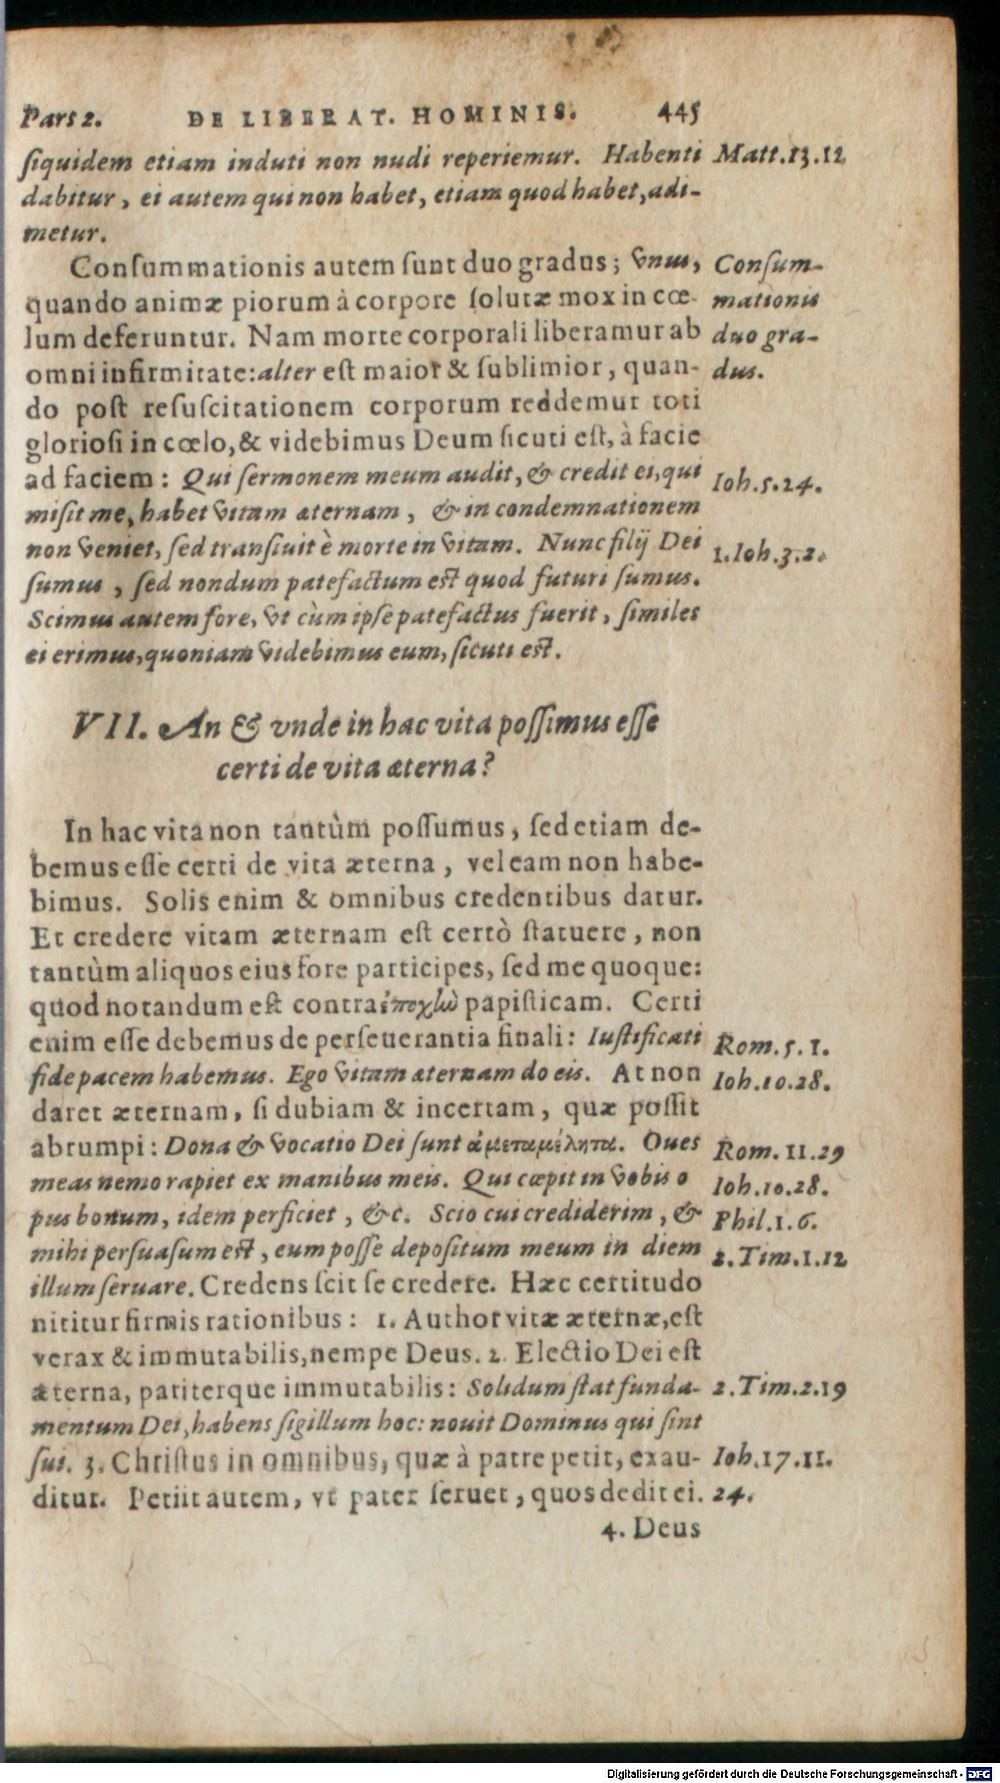 Pars 2. DE LIBERAT. HOMINIS. 445
ſiquidem etiam induti non nudi reperiemur. Habenti Matt.13.12
dabitur, ei autem qui non habet, etiam quod habet, adi-
metur.
Conſummationis autem ſunt duo gradus; vnus, Conſum-
quando animæ piorum à corpore ſolutæ mox in cœ- mationis
lum deferuntur. Nam morte corporali liberamur ab duo gra-
omni infirmitate: alter eſt maior & ſublimior, quan- dus.
do poſt reſuſcitationem corporum reddemur toti
glorioſi in cœlo, & videbimus Deum ſicuti eſt, à facie
ad faciem: Qui ſermonem meum audit, & credit ei, qui Ioh.5.24.
miſit me, habet vitam æternam, & in condemnationem
non veniet, ſed tranſiuit è morte in vitam. Nunc filij Dei 1.Ioh.3.2.
ſumus, ſed nondum patefactum eſt quod futuri ſumus.
Scimus autem fore, vt cùm ipſe patefactus fuerit, ſimiles
ei erimus, quoniam videbimus eum, ſicuti eſt.
VII. An & vnde in hac vita poſſimus eſſe
certi de vita æterna?
In hac vita non tantùm poſſumus, ſed etiam de-
bemus eſſe certi de vita æterna, vel eam non habe-
bimus. Solis enim & omnibus credentibus datur.
Et credere vitam æternam eſt certò ſtatuere, non
tantùm aliquos eius fore participes, ſed me quoque:
quod notandum eſt contra ἐποχὴν papiſticam. Certi
enim eſſe debemus de perſeuerantia finali: Iuſtificati Rom.5.1.
fide pacem habemus. Ego vitam æternam do eis. At non Ioh.10.28.
daret æternam, ſi dubiam & incertam, quæ poſſit
abrumpi: Dona & vocatio Dei ſunt ἀμεταμέλητα. Oues Rom.11.29
meas nemo rapiet ex manibus meis. Qui cœpit in vobis o Ioh.10.28.
pus bonum, idem perficiet, &c. Scio cui crediderim, & Phil.1.6.
mihi perſuaſum eſt, eum poſſe depoſitum meum in diem 2.Tim.1.12
illum ſeruare. Credens ſcit ſe credere. Hæc certitudo
nititur firmis rationibus: 1. Author vitæ æternæ, eſt
verax & immutabilis, nempe Deus. 2. Electio Dei eſt
æterna, pariterque immutabilis: Solidum ſtat funda- 2.Tim.2.19
mentum Dei, habens ſigillum hoc: nouit Dominus qui ſint
ſui. 3. Chriſtus in omnibus, quæ à patre petit, exau- Ioh.17.11.
ditur. Petiit autem, vt pater ſeruet, quos dedit ei. 24.
4. Deus
Digitalisierung gefördert durch die Deutsche Forschungsgemeinschaft - DFG